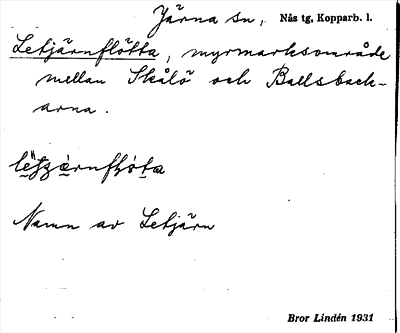 Järna sn, Nås tg, Kopparb. l.
Letjärnflötta, myrmarksområde
mellan Skålö och Ballsback-
arna.
Namn av Letjärn
Bror Lindén 1931